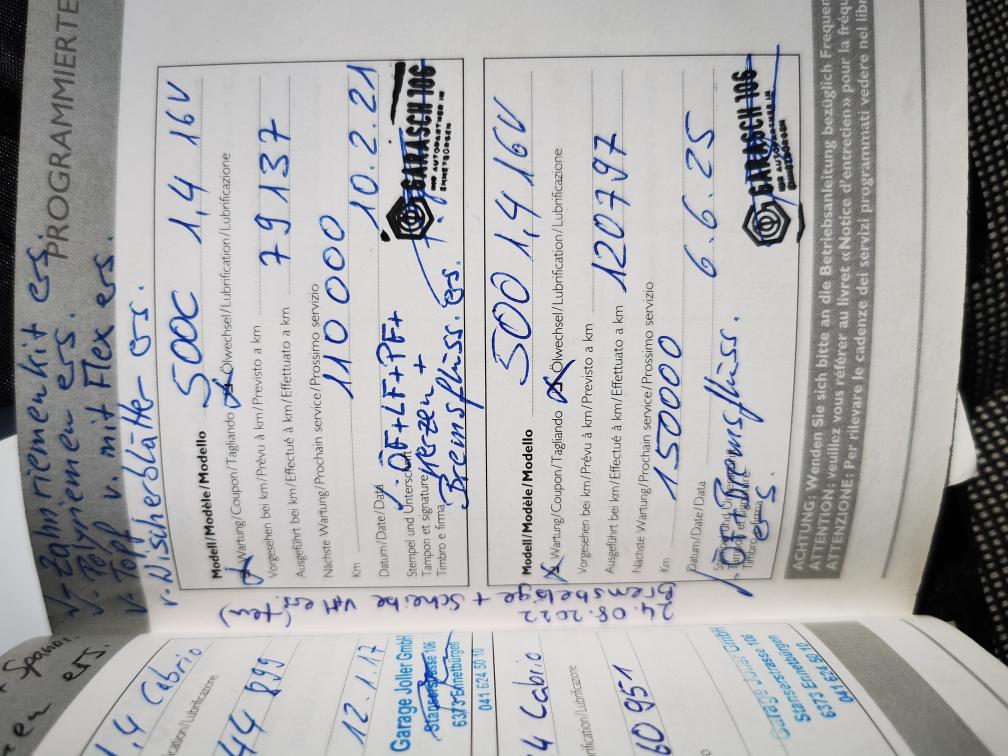 PROGRAMMIERTE
Zahnriemenkit ers.
Polyriemen ers.
v. Topf v. mit Flex ers.
Wischerblätter ers.
Modell/Modèle/Modello 500C 1,4 16V
Wartung/Coupon/Tagliando Ölwechsel/Lubrification/Lubrificazione
Vorgesehen bei km/Prévu à km/Previsto a km
Ausgeführt bei km/Effectué à km/Effettuato a km 79137
Nächste Wartung/Prochain service/Prossimo servizio
Km 110 000
Datum/Date/Data 10.2.21
Stempel und Unterschrift
Tampon et signature
Timbro e firma
ÖF+LF+PF+
Kerzen +
Bremsflüss. ers.
GARASCH 106
IHR AUTOPARTNER IN
ENNETBÜRGEN
24.08.2022
Bremsbeläge + Scheibe
Modell/Modèle/Modello 500 1,4 16V
Wartung/Coupon/Tagliando Ölwechsel/Lubrification/Lubrificazione
Vorgesehen bei km/Prévu à km/Previsto a km
Ausgeführt bei km/Effectué à km/Effettuato a km 120797
Nächste Wartung/Prochain service/Prossimo servizio
Km 150000
Datum/Date/Data 6.6.25
Timbro e firma
ÖF+Bremsflüss.
ers.
GARASCH 106
IHR AUTOPARTNER IN
ENNETBÜRGEN
ACHTUNG: Wenden Sie sich bitte an die Betriebsanleitung bezüglich Frequen
ATTENTION: veuillez vous référer au livret «Notice d'entretien» pour la fréqu
ATTENZIONE: Per rilevare le cadenze dei servizi programmati vedere nel libr
ers.
1,4 Cabrio
cation/Lubrificazione
44 899
12.1.17
Garage Joller GmbH
Stanserstrasse 106
6373 Ennetbürgen
041 624 50 10
4 Cabrio
ification/Lubrificazione
60951
Garage Joller GmbH
Stanserstrasse 106
6373 Ennetbürgen
041 624 50 10